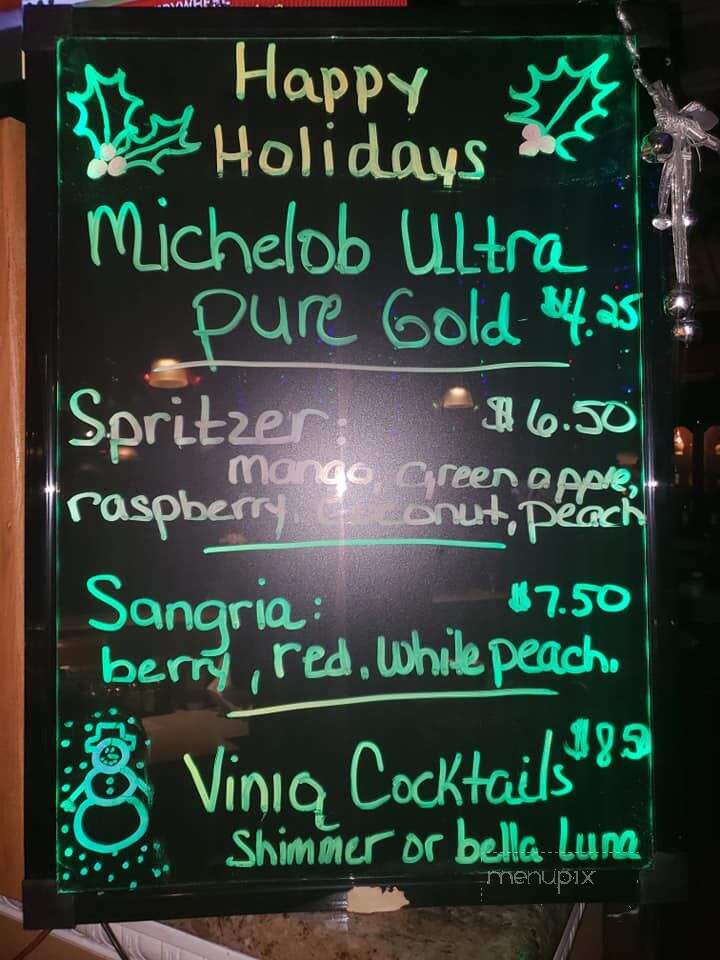 Happy
Holidays
Michelob Ultra
pure Gold $4.25
Spritzer: $6.50
mango, green apple,
raspberry, coconut, peach
Sangria: $7.50
berry, red, white peach.
Viniq Cocktails $8.5
Shimmer or bella Luna
menupix